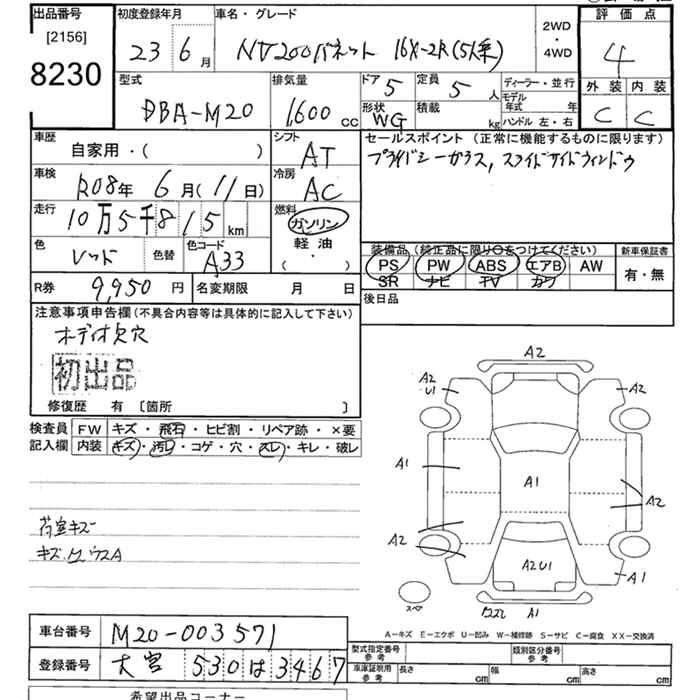 出品番号
[2156]
8230
初度登録年月
23 6 月
車名・グレード
NV200バネット 16X-2R(5人乗)
2WD
・
4WD
評価点
4
外装 内装
C C
型式
DBA-M20
排気量
1600 cc
ドア 5
形状 WG
定員 5 人
積載 kg
ディーラー・並行
モデル年式 年
ハンドル 左・右
車歴
自家用・( )
シフト
AT
車検
R08年 6月(11日)
冷房
AC
走行
10万5千815 km
燃料
ガソリン
軽油
・
( )
色
レッド
色替
色コード
A33
R券 9,950 円
名変期限 月 日
セールスポイント (正常に機能するものに限ります)
プライバシーガラス,スライドサイドウィンドウ
装備品(純正品に限り○をつけてください)
PS PW ABS エアB AW
SR ナビ TV カワ
新車保証書
有・無
後日品
注意事項申告欄(不具合内容等は具体的に記入して下さい)
オーディオ欠穴
初出品
修復歴 有 〔箇所 〕
検査員記入欄
FW キズ・飛石・ヒビ割・リペア跡・×要
内装 キズ・汚レ・コゲ・穴・スレ・キレ・破レ
荷室キズ
A2
A2
U1
A2
A1
A1
A2
A2
A2U1
A1
スペア
A1
A−キズ E−エクボ U−凹み W−補修跡 S−サビ C−腐食 XX−交換済
車台番号 M20-003571
登録番号 大宮 530 は 3467
型式指定番号
参考
類別区分番号
参考
車庫証明用
参考
長さ cm
幅 cm
高さ cm
希望出品コーナー